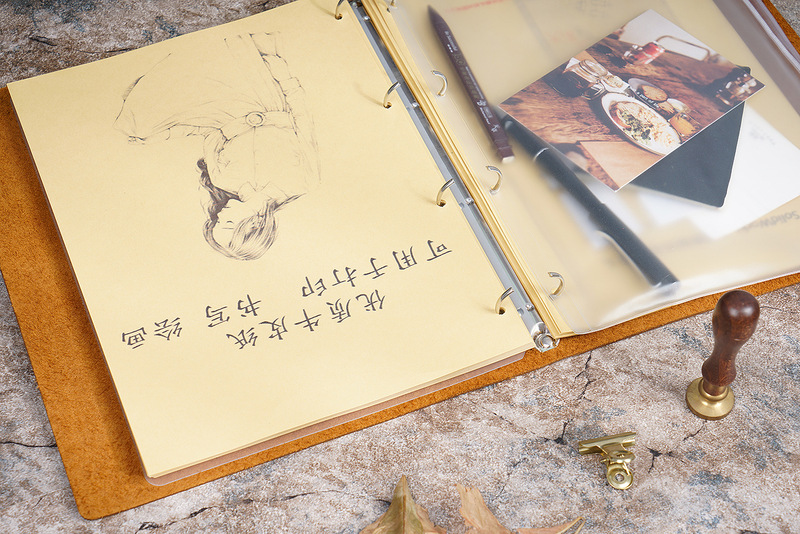 优质牛皮纸
可用于打印 书写 绘画